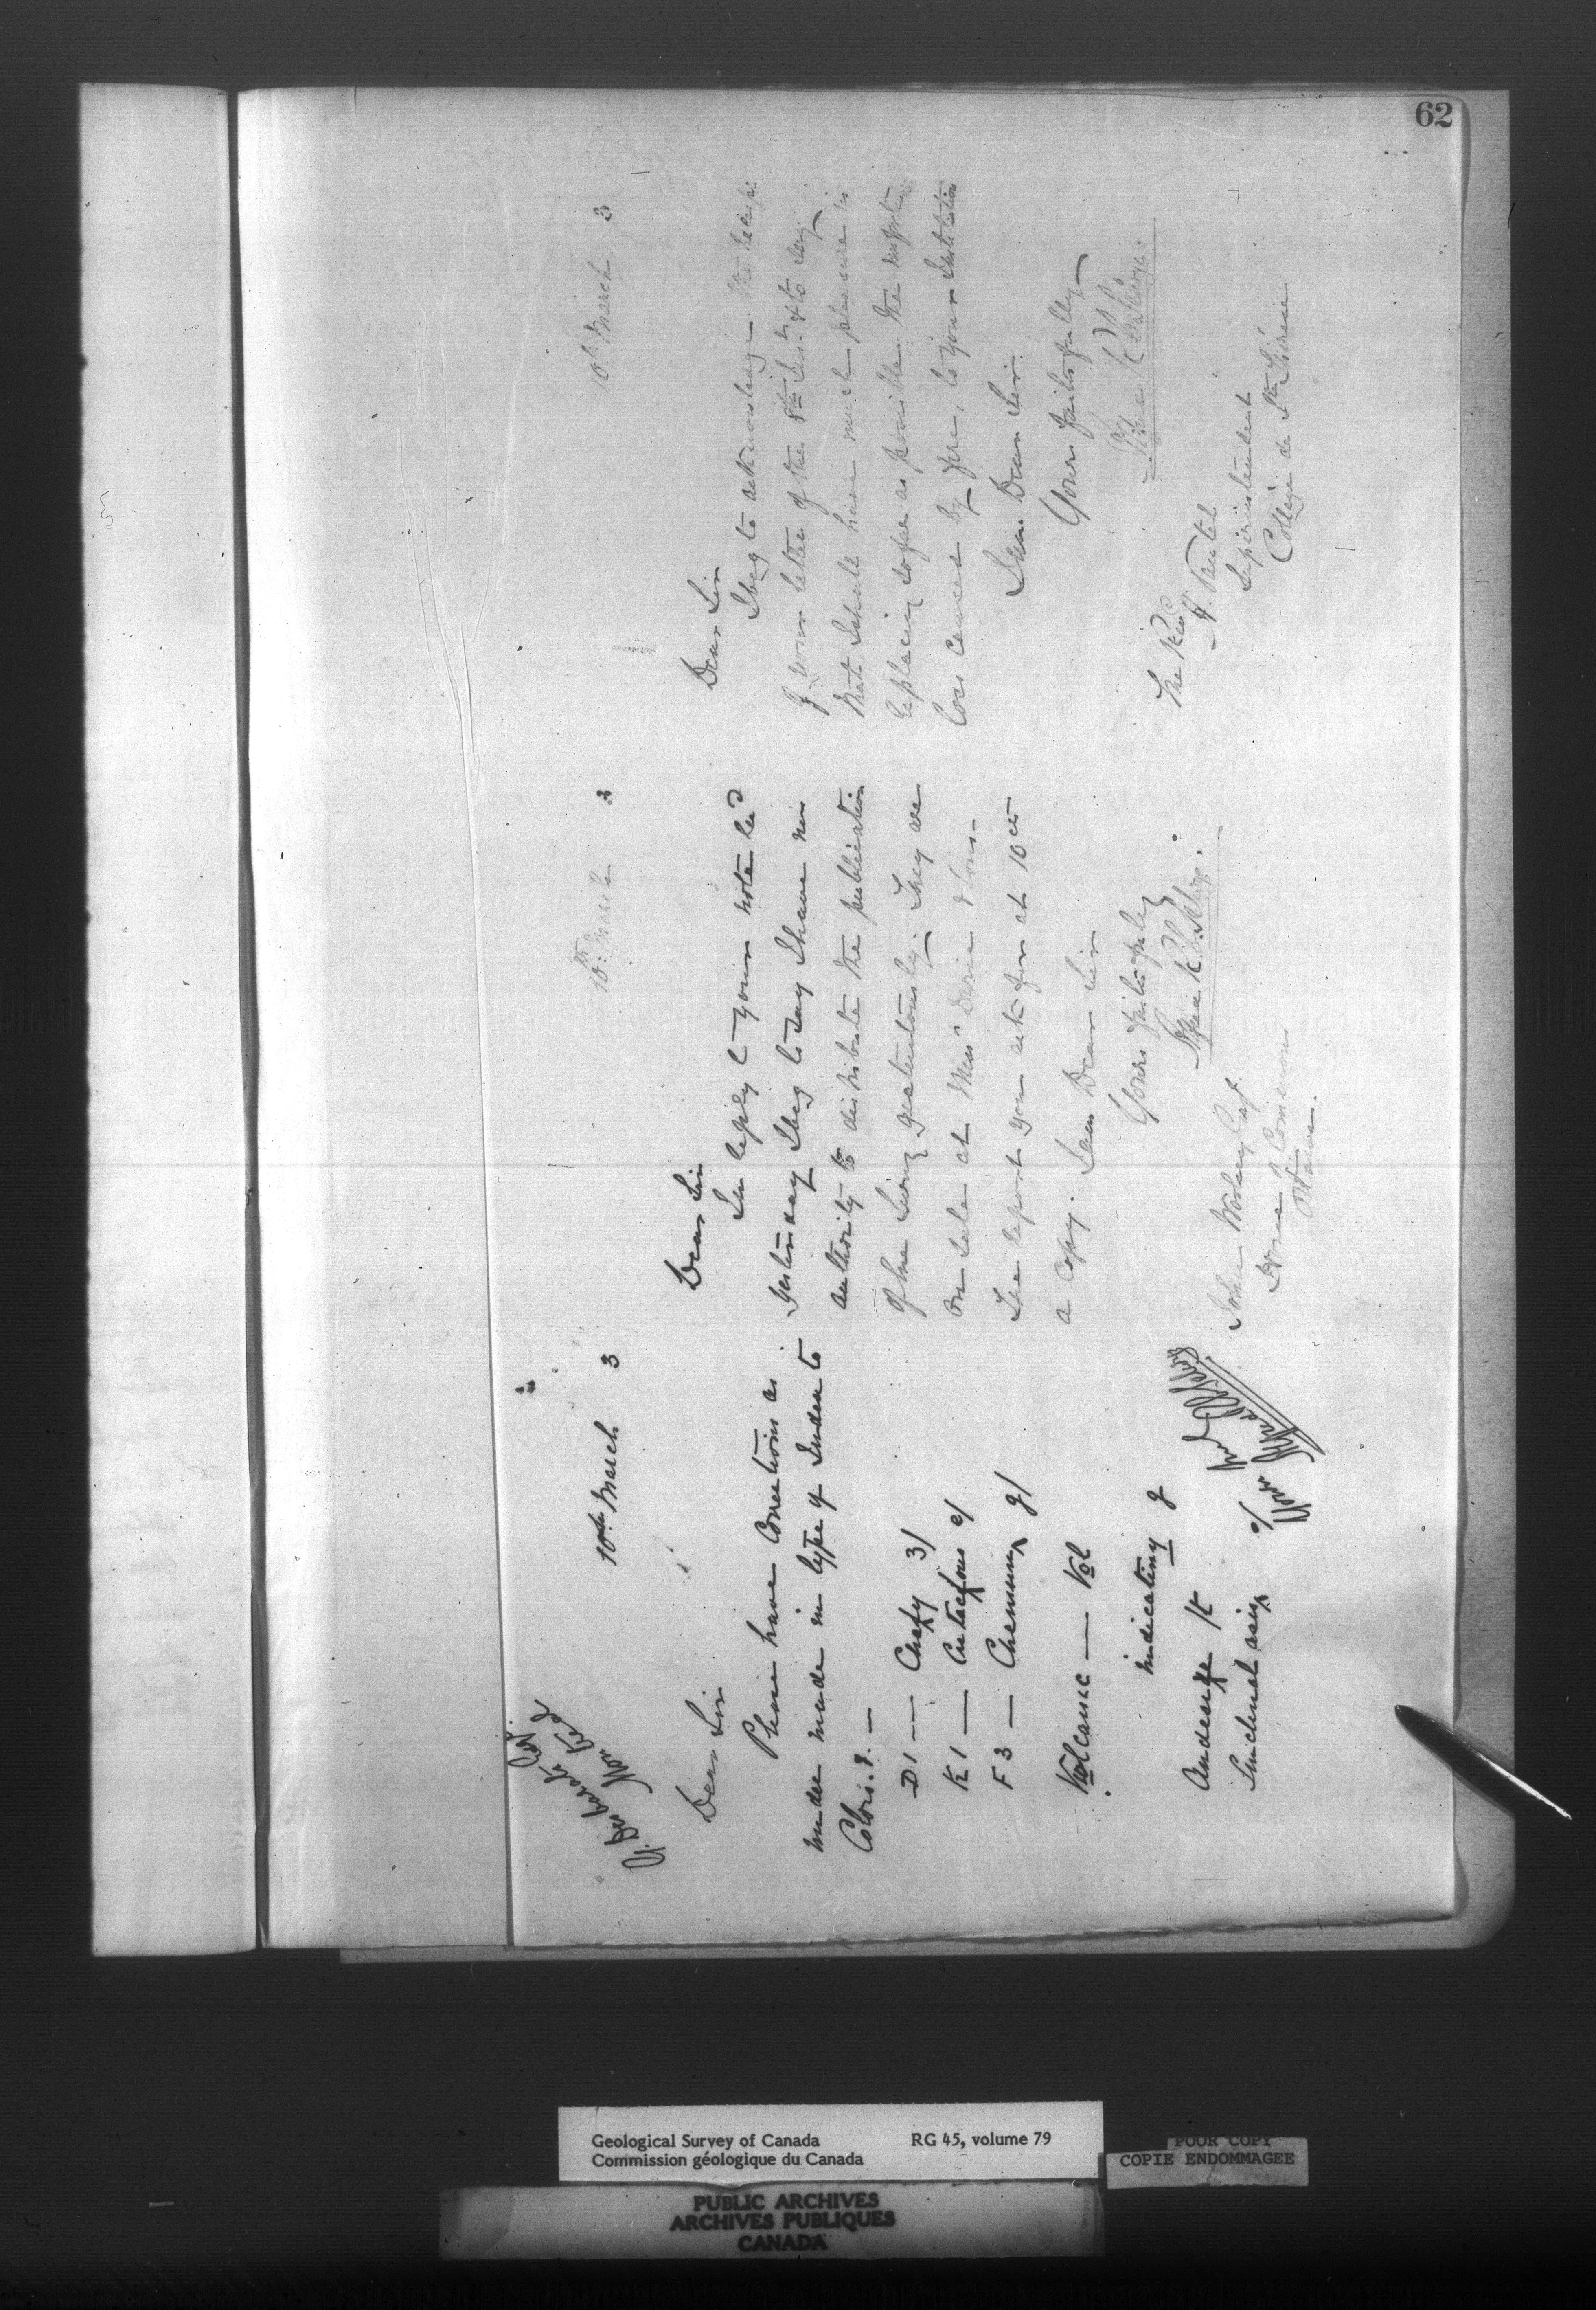 62
10th March 3
Dear Sir
Please have Corrections as
under made in type of Index to
Colors. &. —
D1 — Chazy 3/
K1 — Cretaceous c/
F3 — Chemung g/
Volcanic — Vol
indicating g
Andesite It
Synclinal axis
10th March 3
Dear Sir
In reply to your note rec'd
yesterday I beg to say I have no
authority to distribute the publication
of the Survey gratuitously. They are
on sale at Mess" Durie & Son -
The report you ask for at 10 cts
a copy. I am Dear Sir
Yours faithfully
John Esq.
House of Commons
Ottawa.
10th March 3
Dear Sir
I beg to acknowledge the receipt
of your letter of the 8th Inst. & to say
that I shall have much pleasure in
replacing so far as possible the reports
lost caused by fire, to your Institution
I am Dear Sir
Yours faithfully
The Revd
A. Nantel
Superintendent
College de Ste Thérèse
Geological Survey of Canada RG 45, volume 79
Commission géologique du Canada
POOR COPY
COPIE ENDOMMAGEE
PUBLIC ARCHIVES
ARCHIVES PUBLIQUES
CANADA